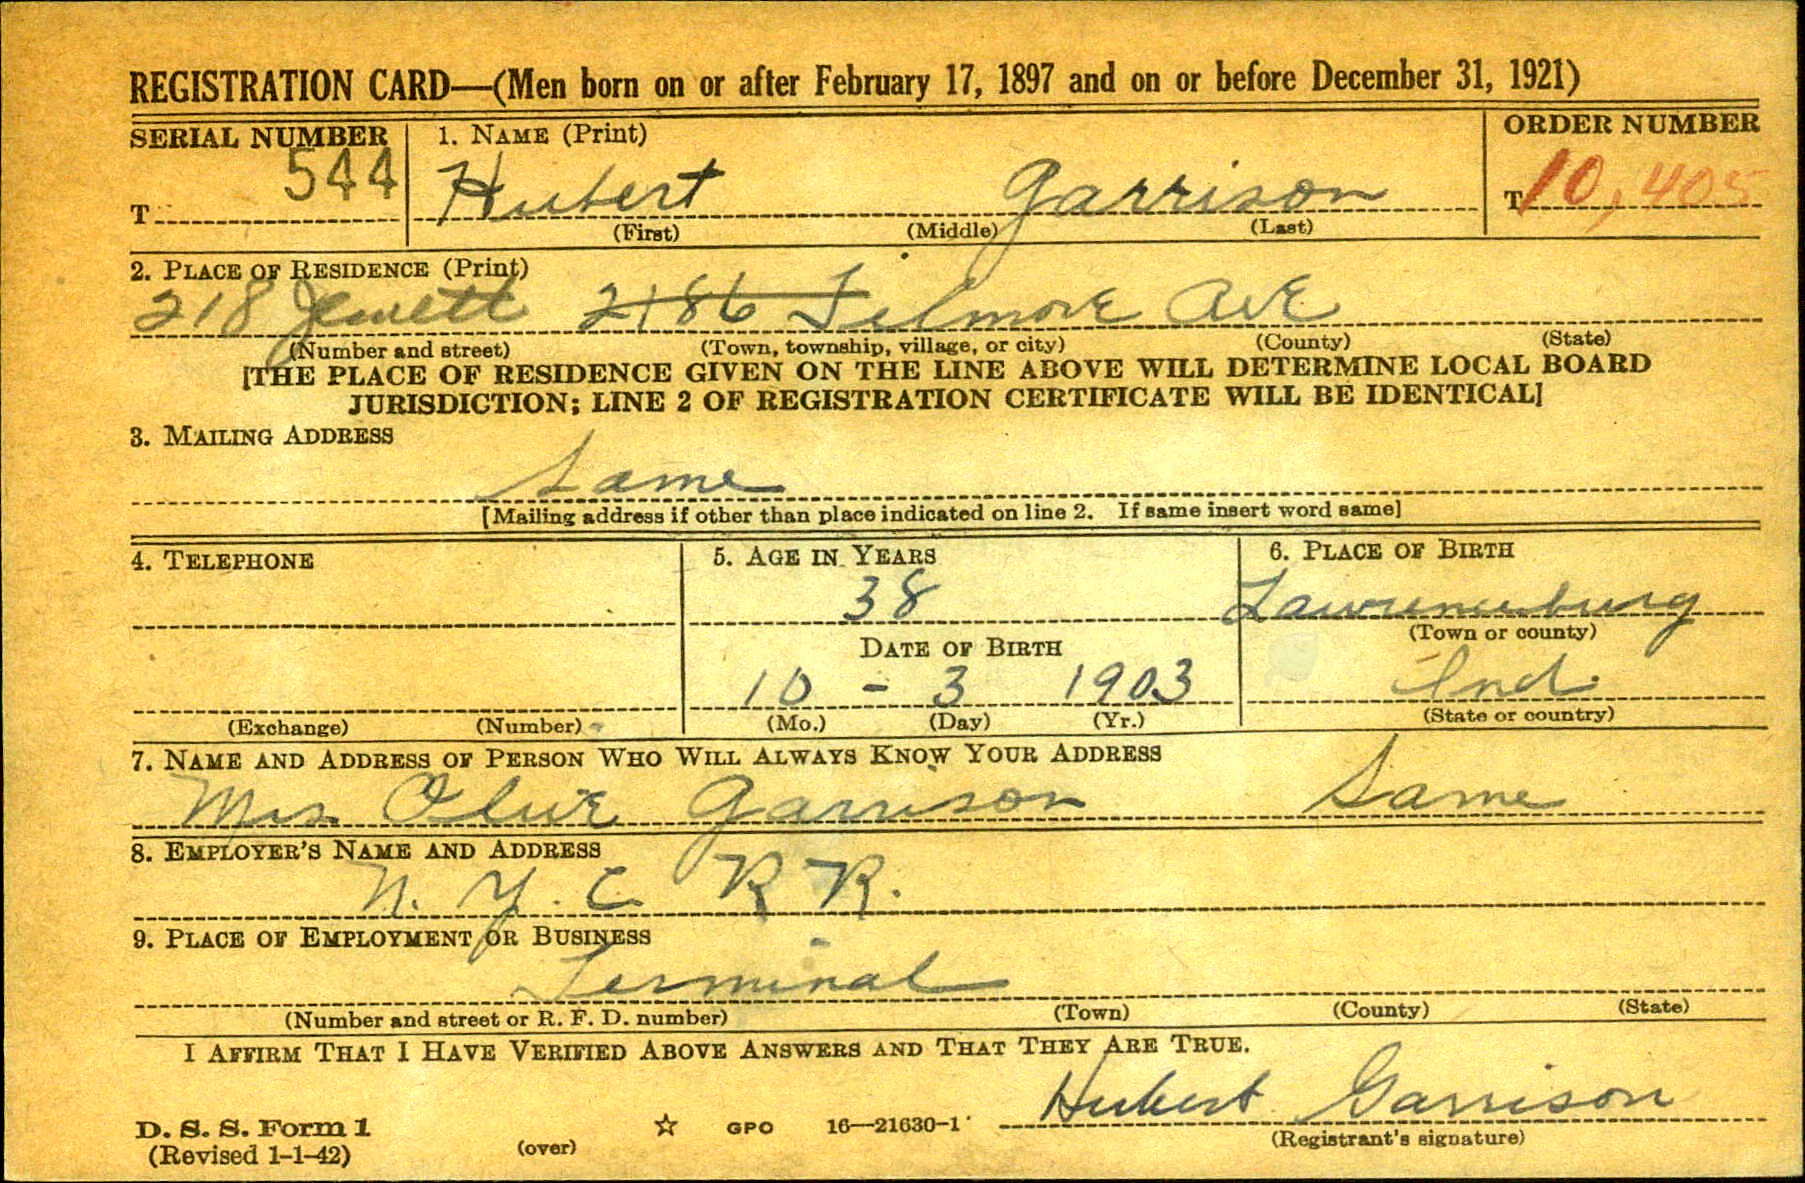 REGISTRATION CARD—(Men born on or after February 17, 1897 and on or before December 31, 1921)
SERIAL NUMBER 1. NAME (Print) ORDER NUMBER
T 544 Hubert Garrison T 10,405
(First) (Middle) (Last)
2. PLACE OF RESIDENCE (Print)
218 Jewett 2186 Filmore AvE
(Number and street) (Town, township, village, or city) (County) (State)
[THE PLACE OF RESIDENCE GIVEN ON THE LINE ABOVE WILL DETERMINE LOCAL BOARD
JURISDICTION; LINE 2 OF REGISTRATION CERTIFICATE WILL BE IDENTICAL]
3. MAILING ADDRESS
Same
[Mailing address if other than place indicated on line 2. If same insert word same]
4. TELEPHONE 5. AGE IN YEARS 6. PLACE OF BIRTH
38 Lawrenceburg
(Town or county)
DATE OF BIRTH
10 - 3 1903 Ind.
(Exchange) (Number) (Mo.) (Day) (Yr.) (State or country)
7. NAME AND ADDRESS OF PERSON WHO WILL ALWAYS KNOW YOUR ADDRESS
Mrs. Olive Garrison Same
8. EMPLOYER'S NAME AND ADDRESS
N. Y. C. R R.
9. PLACE OF EMPLOYMENT OR BUSINESS
Terminal
(Number and street or R. F. D. number) (Town) (County) (State)
I AFFIRM THAT I HAVE VERIFIED ABOVE ANSWERS AND THAT THEY ARE TRUE.
Hubert Garrison
D. S. S. Form 1 ☆ GPO 16—21630-1
(Revised 1-1-42) (over) (Registrant's signature)